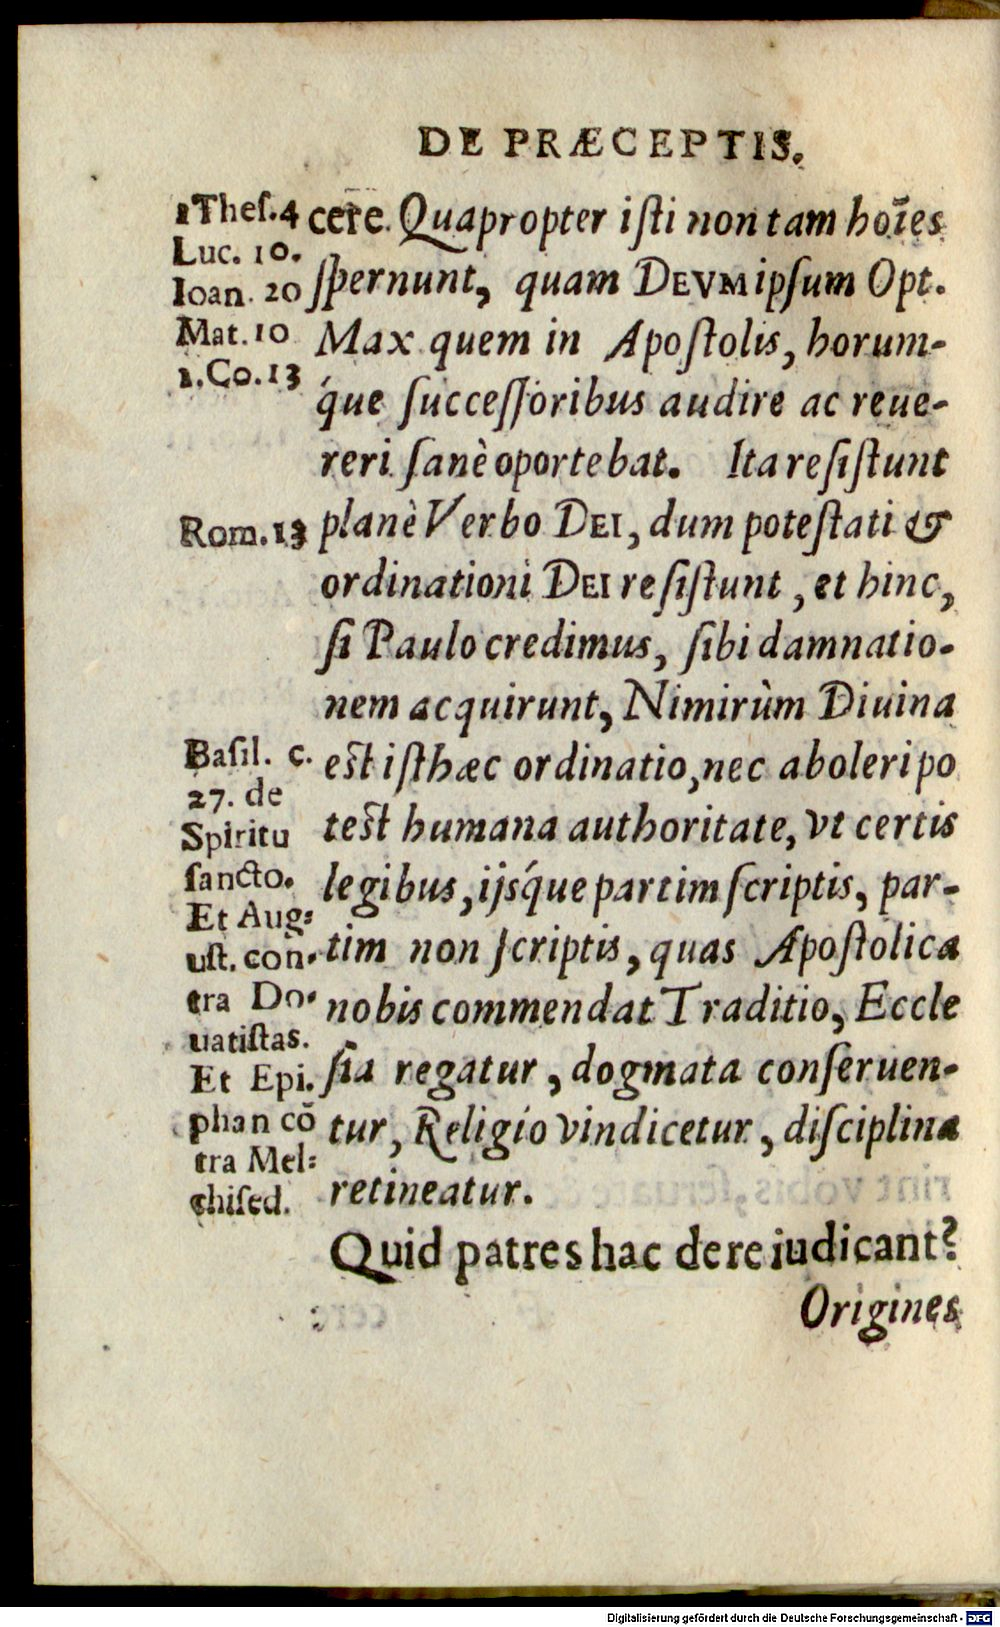 DE PRÆCEPTIS.
1 Theſ. 4
Luc. 10.
Ioan. 20
Mat. 10
2. Co. 13
cere. Quapropter iſti non tam hoīes
ſpernunt, quam DEVM ipſum Opt.
Max quem in Apoſtolis, horum-
q́ue ſucceſſoribus audire ac reue-
reri ſanè oportebat. Ita reſiſtunt
Rom. 13
planè Verbo DEI, dum poteſtati &
ordinationi DEI reſiſtunt, et hinc,
ſi Paulo credimus, ſibi damnatio-
nem acquirunt, Nimirùm Diuina
Baſil. c.
27. de
Spiritu
ſancto.
Et Aug-
uſt. con-
tra Do-
uatiſtas.
Et Epi.
phan cō
tra Mel-
chiſed.
eſt iſthæc ordinatio, nec aboleri po
teſt humana authoritate, vt certis
legibus, ijsq́ue partim ſcriptis, par-
tim non ſcriptis, quas Apoſtolica
nobis commendat Traditio, Eccle
ſia regatur, dogmata conſeruen-
tur, Religio vindicetur, diſciplina
retineatur.
Quid patres hac de re iudicant?
Origines
Digitalisierung gefördert durch die Deutsche Forschungsgemeinschaft - DFG